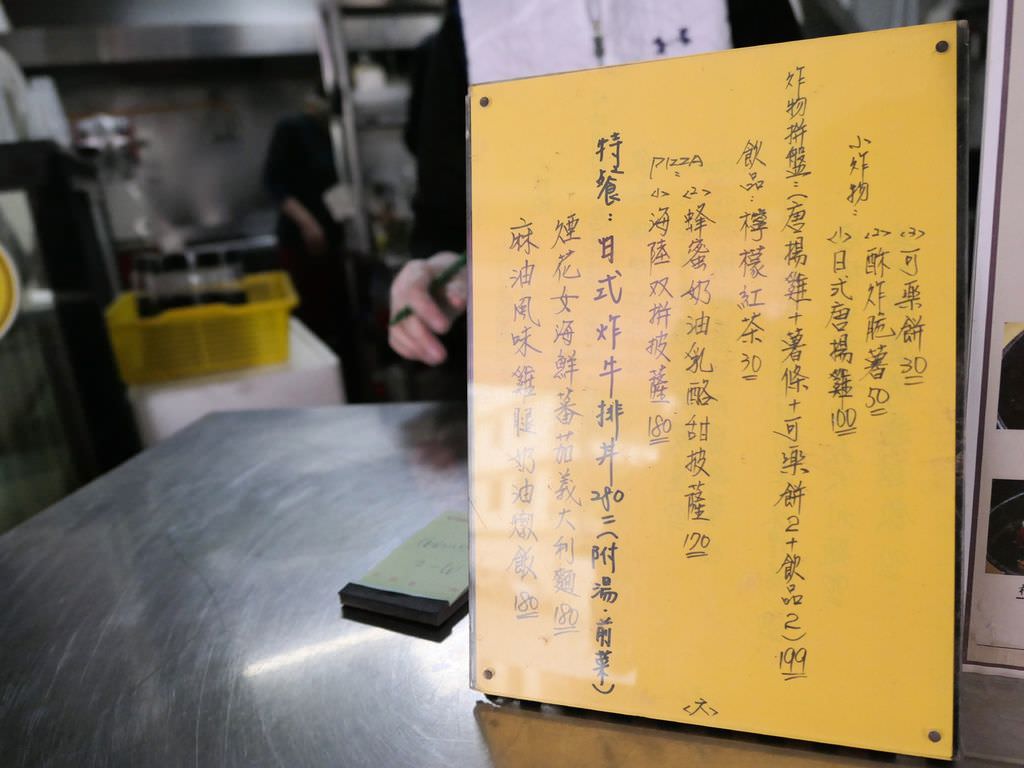 小炸物:
<1>日式唐揚雞 100
<2>酥炸脆薯 50
<3>可樂餅 30
炸物拼盤:(唐楊雞+薯條+可樂餅2+飲品2)199
飲品:檸檬紅茶 30
PIZZA:
<1>海陸双拼披薩 180
<2>蜂蜜奶油乳酪甜披薩 170
特餐:日式炸牛排丼 280 (附湯.前菜)
煙花女海鮮蕃茄義大利麵 180
麻油風味雞腿奶油燉飯 180
<六>